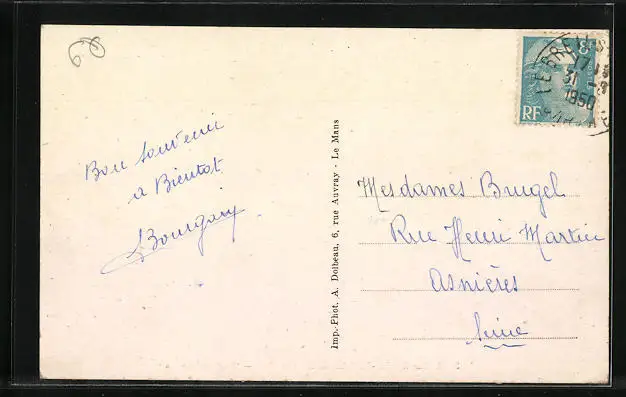 Bon souvenir
a Bientot
Bourgoin
Imp.-Phot. A. Dolbeau, 6, rue Auvray - Le Mans
RF
17
31 -8
1950
Mesdames Brugel
Rue Henri Martin
Asnières
Seine